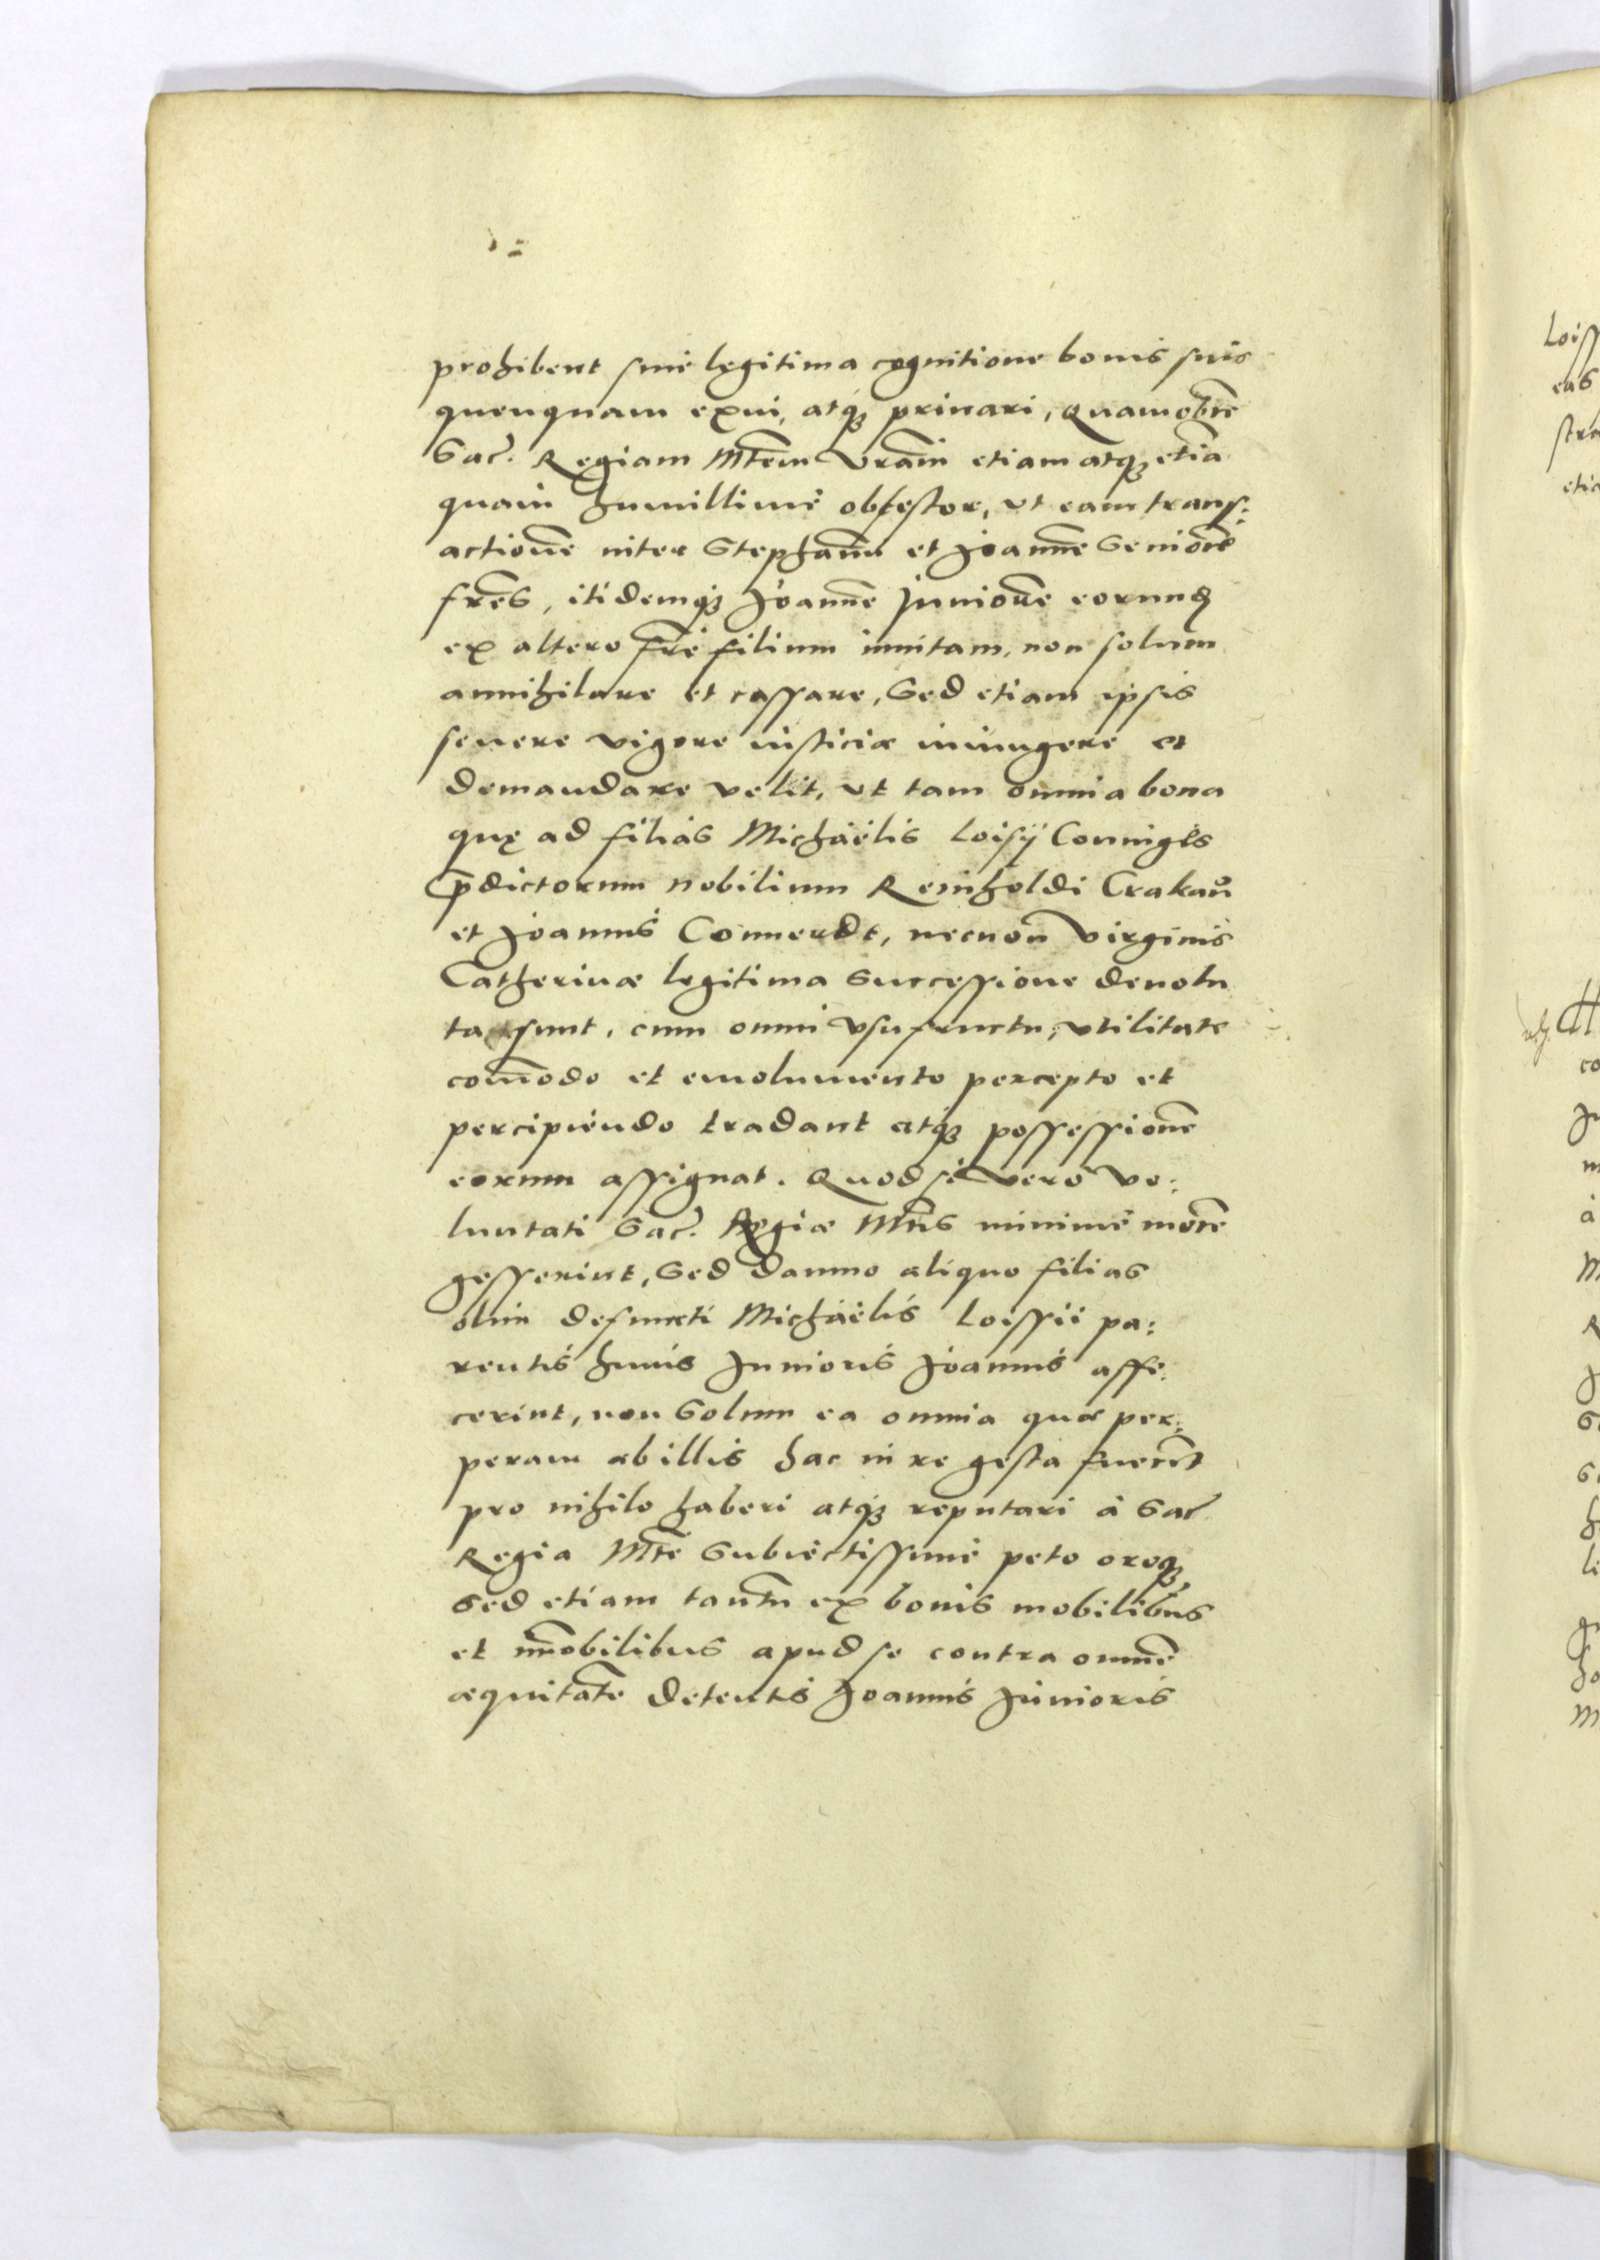 prohibent sine legitima cognitione bonis suis
quenquam exui, atq₃ priuari, Quamobrē
Sac. Regiam Mtēm Vrām etiam atq₃ etiā
quàm humillimè obtestor, vt eam trans:
actionē inter Stephanū et Joannē Seniorē
frēs, itidemq₃ Joannē Juniorē eorund
ex altero frē filium initam, non solum
annihilare et cassare, Sed etiam ipsis
seuere vigore iusticiæ iniungere et
demandare velit, vt tam omnia bona
quę ad filias Michaëlis Loisij Coniuges
p̄dictorum nobilium Reinholdi Crakaů
et Joannis Connerdt, necnon Virginis
Catherinæ legitima Successione deuolu
ta sunt, cum omni vsufructu, vtilitate
com̄odo et emolumento percepto et
percipiendo tradant atq₃ possessionē
eorum assignat. Quod si vero vo:
luntati Sac. Regiæ Mtis minimè morē
gesserint, Sed damno aliquo filias
olim defuncti Michaëlis Loissii pa:
rentis huius Junioris Joannis affe:
cerint, non Solum ea omnia quæ per:
peram ab illis hac in re gesta fuerīt
pro nihilo haberi atq₃ reputari à Sac
Regia Mte Subiectissimè peto oroq₃
Sed etiam tantū ex bonis mobilibus
et im̄obilibus apud se contra omnē
æquitatē detentis Joannis Junioris
Loiss
eas